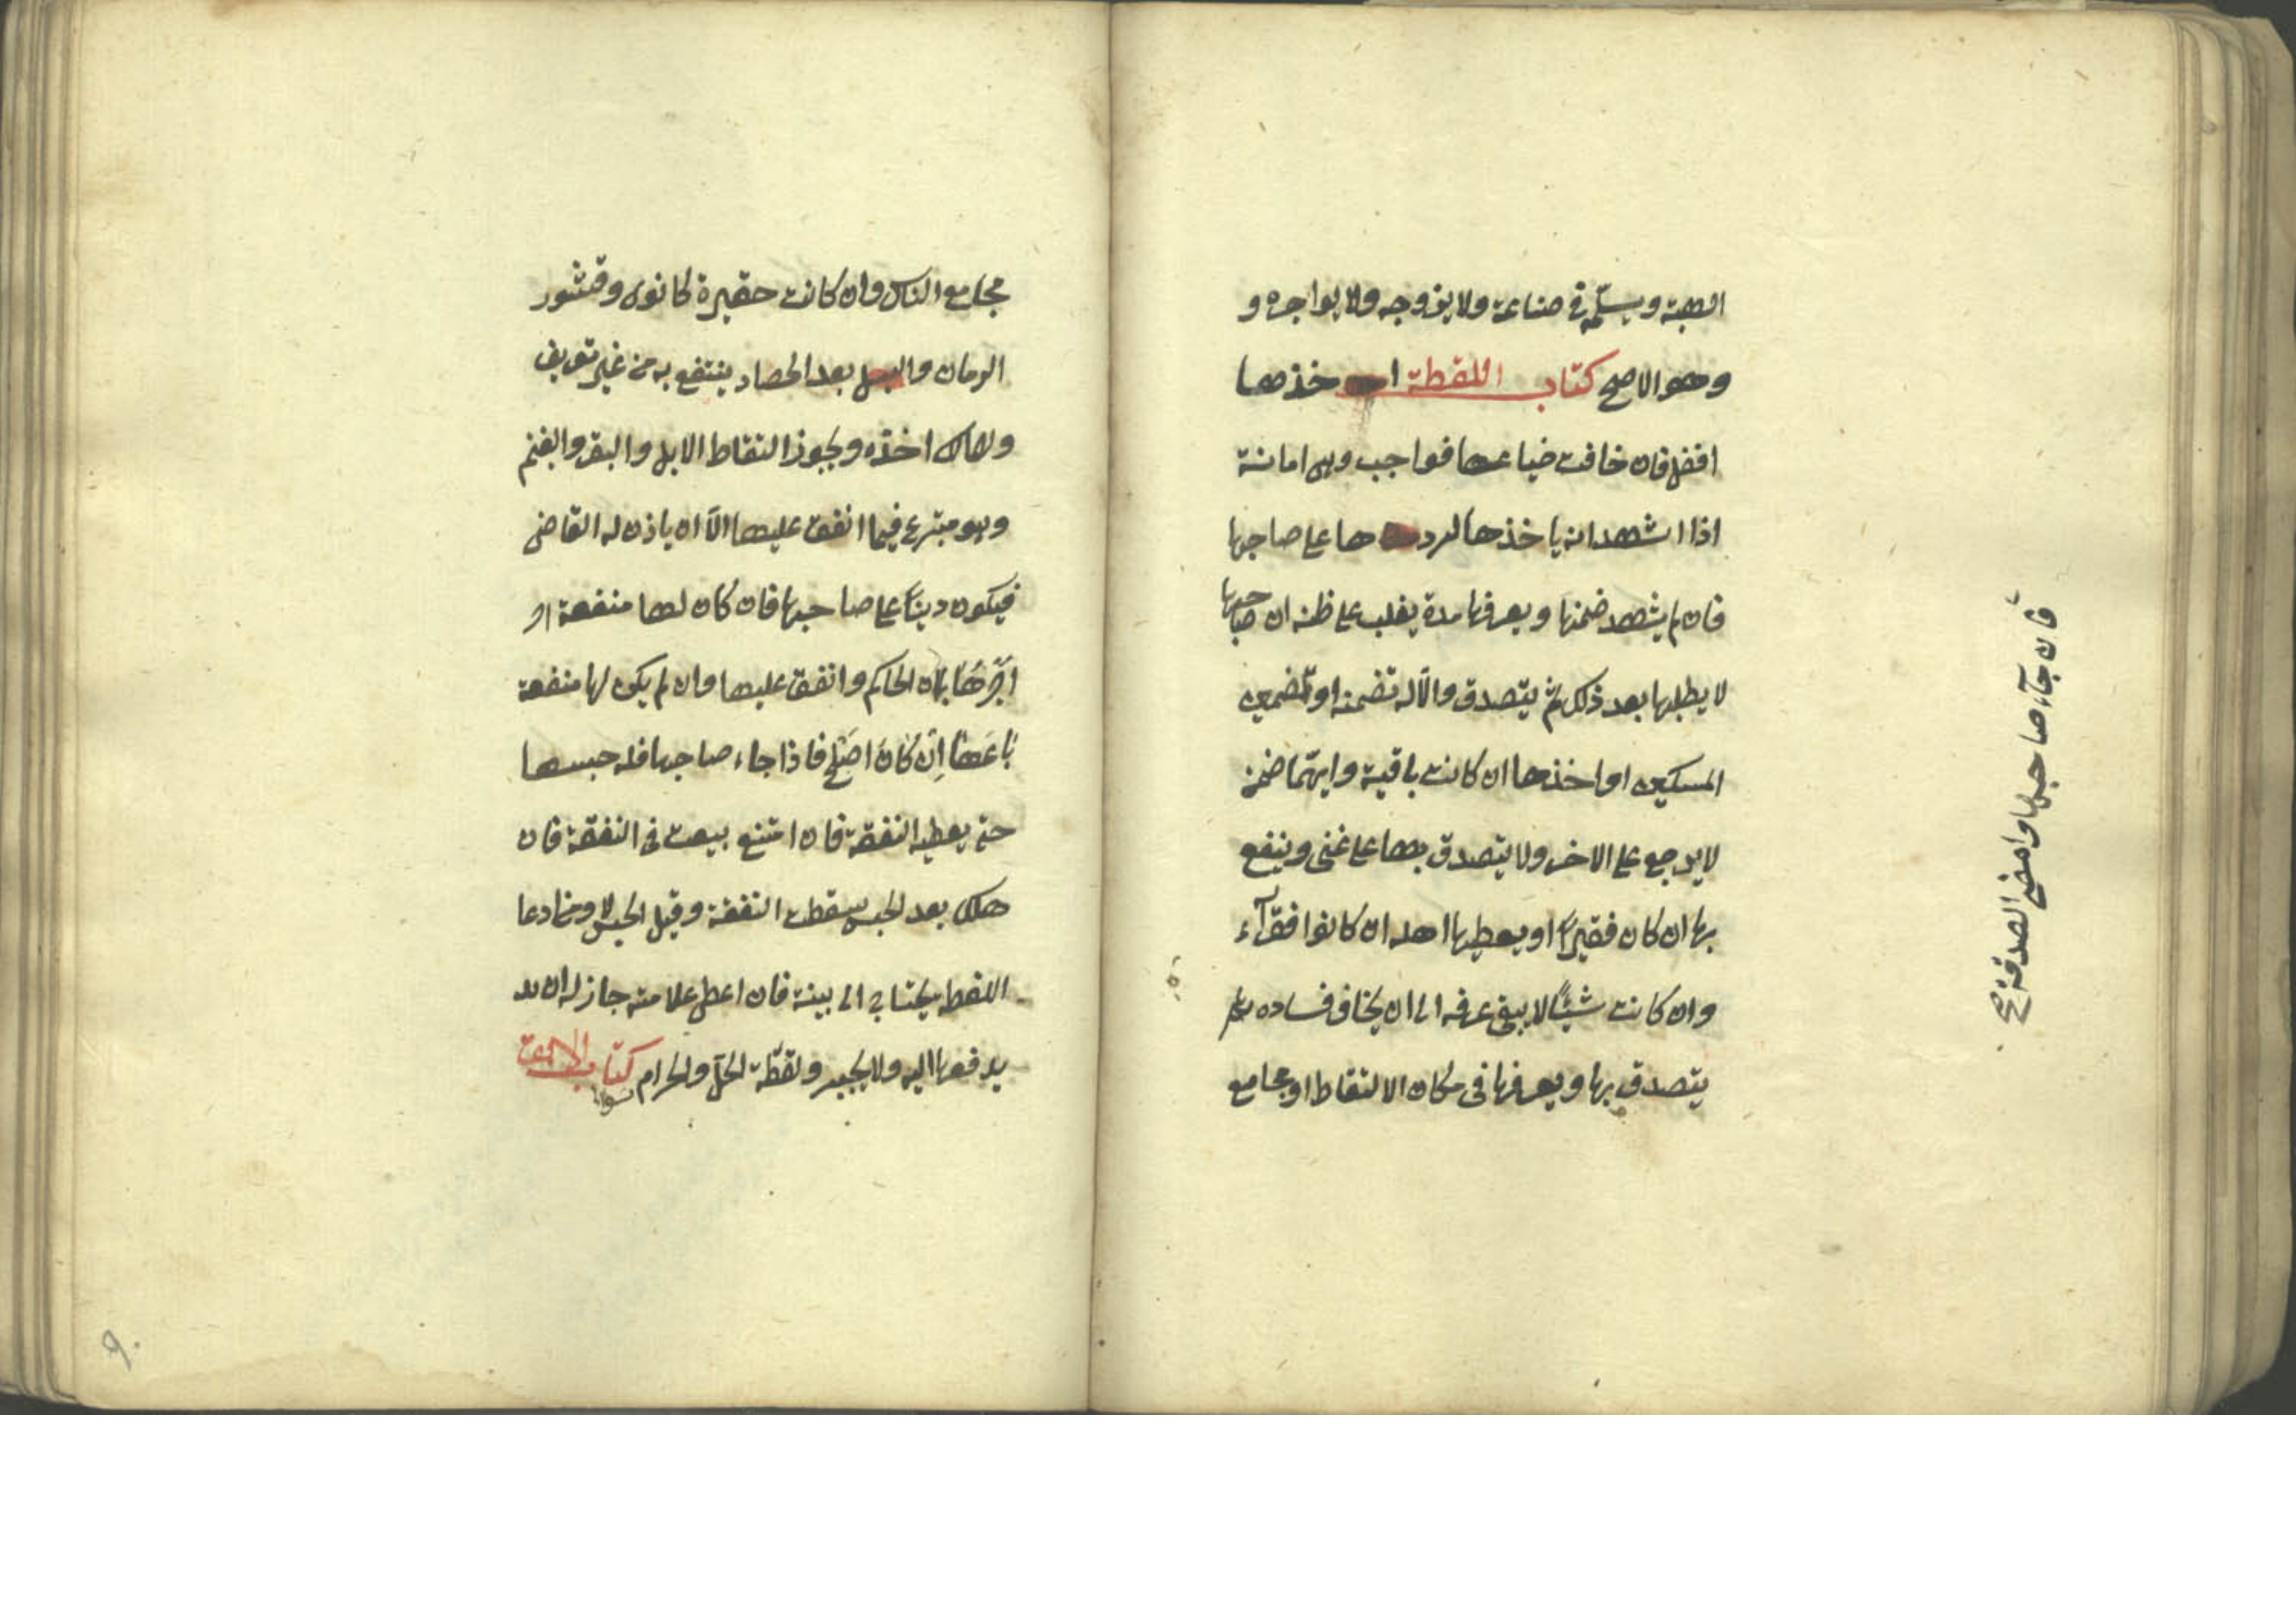 الهبة ويسلمه في صناعة ولا يزوجه ولا يواجره و
وهو الاصح كتاب اللقطة اخذها
افضل فان خافت ضياعها فواجب وهي امانة
اذا اشهد انه ياخذها ليردها على صاحبها
فان لم يشهد ضمنها ويعرفها مدة يغلب على ظنه ان صاحبها
لا يطلبها بعد ذلك ثم يتصدق والا له تضمنه او تضمين
المسكين او اخذها ان كانت باقية وايهما ضمن
لا يرجع على الاخر ولا يتصدق بها على غني وينفع
بها ان كان فقيرًا او يعطيها اهله ان كانوا فقرآء
وان كانت شيئًا لا يبقى عرفه الى ان يخاف فساده ثم
يتصدق بها ويعرفها في مكان الالتقاط او مجامع
فان جآء صاحبها وامضى الصدقة صح
مجامع الناس وان كانت حقيرة كالنوى وقشور
الرمان والسنبل بعد الحصاد ينتفع به من غير تعريف
ولمالك اخذه ويجوز التقاط الابل والبقر والغنم
وهو متبرع فيما انفق عليها الّا ان ياذن له القاضي
فيكون دينًا على صاحبها فان كان لها منفعة او
اجّرها الحاكم وانفق عليها وان لم يكن لها منفعة
باعَها اِن كان اصلح فاذا جاء صاحبها فله حبسها
حتى يعطيه النفقة فان امتنع بيعت في النفقة فان
هلك بعد الحبس سقطت النفقة وقبل الحبس لا ومن ادعا
اللقطه يحتاج الى بينة فان اعطى علامته جاز له ان
يدفعها اليه ولا يجبر ولقطة الحلّ والحرام سواء كتاب
٩٠